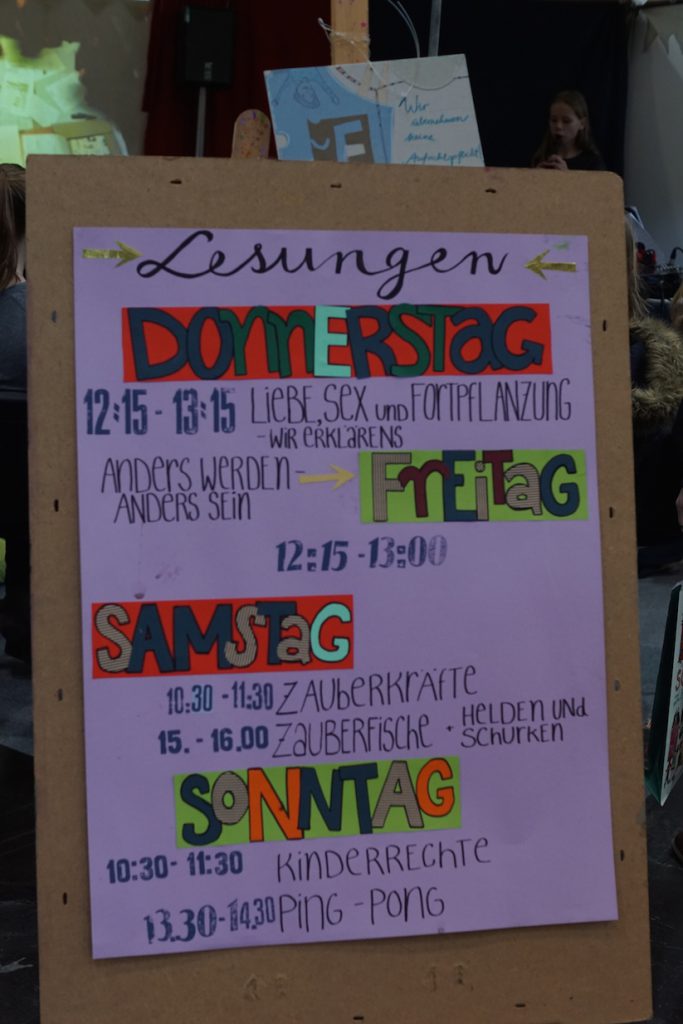 Wir
übernehmen
keine
Aufsichtspflicht
E
Lesungen
DONNERSTAG
12:15 - 13:15 LIEBE, SEX UND FORTPFLANZUNG
- WIR ERKLÄRENS
ANDERS WERDEN -
ANDERS SEIN
FREITAG
12:15 - 13:00
SAMSTAG
10:30 - 11:30 ZAUBERKRÄFTE
15. - 16.00 ZAUBERFISCHE + HELDEN UND
SCHURKEN
SONNTAG
10:30 - 11:30 KINDERRECHTE
13.30 - 14.30 PING - PONG